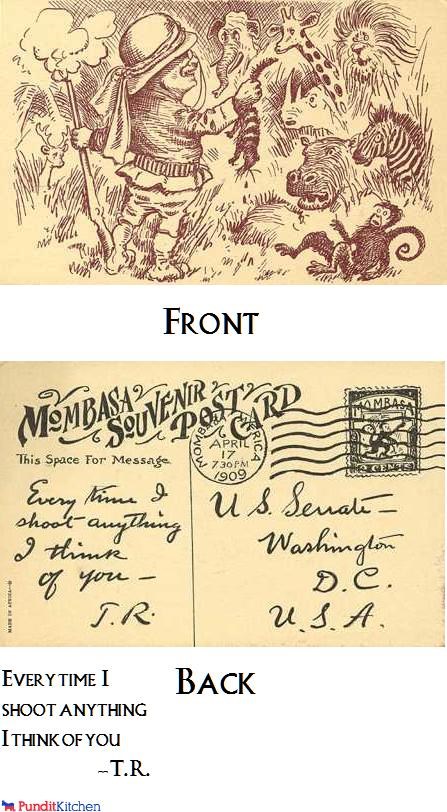 FRONT
MOMBASA SOUVENIR POST CARD
This Space For Message.
Every time I
shoot anything
I think
of you —
T.R.
MADE IN AFRICA
MOMBASA AFRICA
APRIL
17
7 30 PM
1909
MOMBASA
2 CENTS
U. S. Senate —
Washington
D.C.
U. S. A.
BACK
EVERY TIME I
SHOOT ANYTHING
I THINK OF YOU
~T.R.
PunditKitchen